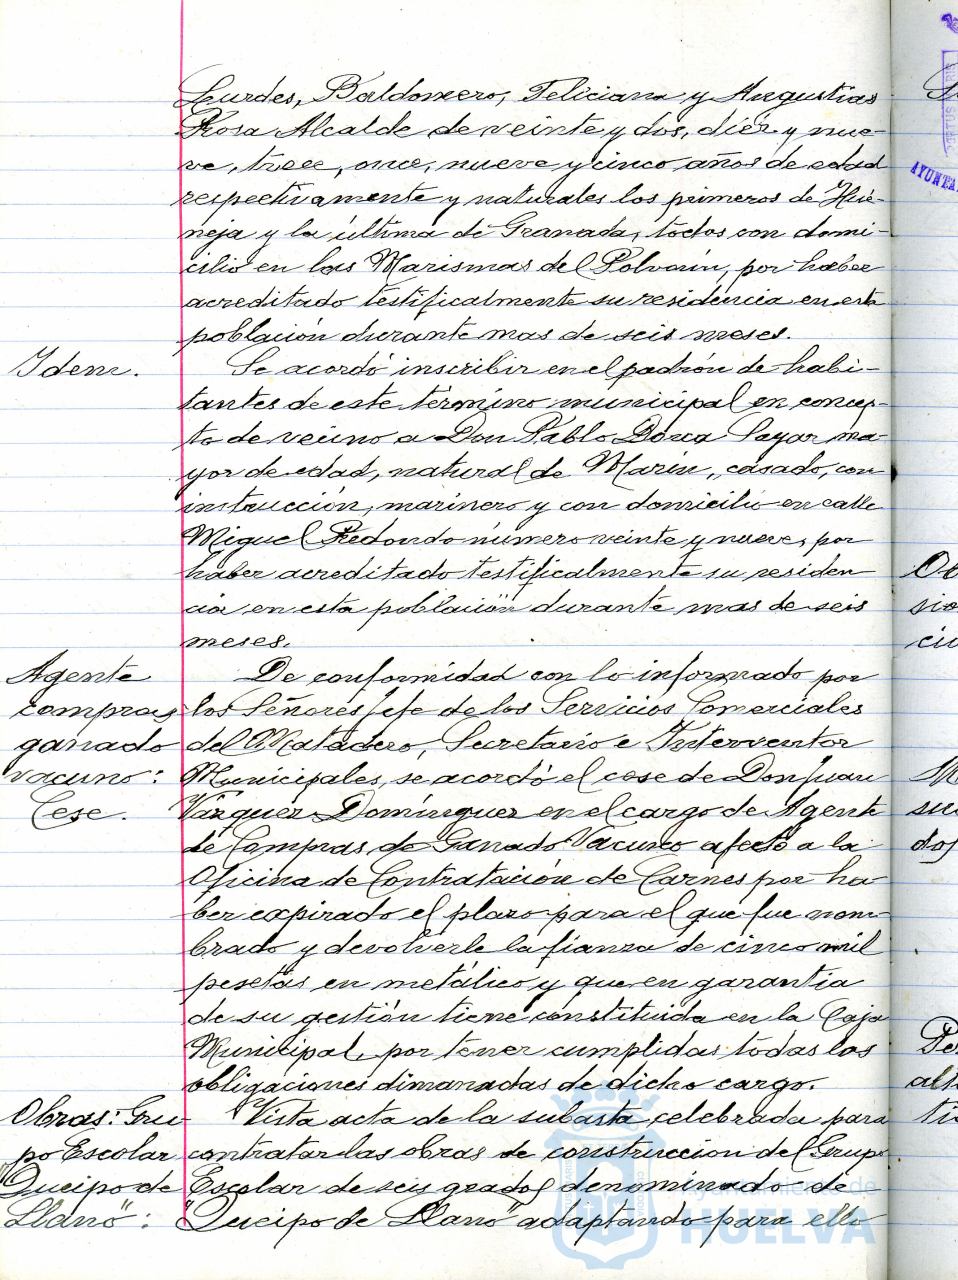 Lurdes, Baldomero, Feliciana y Angustias
Rosa Alcalde de veinte y dos, diez y nue-
ve, trece, once, nueve y cinco años de edad
respectivamente y naturales los primeros de Hué-
neja y la última de Granada, todos con domi-
cilio en las Marismas del Polvorín, por haber
acreditado testificalmente su residencia en esta
población durante mas de seis meses.
Idem.
Se acordó inscribir en el padrón de habi-
tantes de este término municipal en concep-
to de vecino a Don Pablo Dorca Sayar ma-
yor de edad, natural de Marín, casado, con
instrucción, marinero y con domicilio en calle
Miguel Redondo número veinte y nueve, por
haber acreditado testificalmente su residen-
cia en esta población durante mas de seis
meses.
Agente
compras
ganado
vacuno:
Cese.
De conformidad con lo informado por
los Señores Jefe de los Servicios Comerciales
del Matadero, Secretario e Interventor
Municipales, se acordó el cese de Don Juan
Vázquez Domínguez en el cargo de Agente
de Compras de Ganado Vacuno afecto a la
Oficina de Contratación de Carnes por ha-
ber expirado el plazo para el que fue nom-
brado y devolverle la fianza de cinco mil
pesetas en metálico y que en garantia
de su gestión tiene constituida en la Caja
Municipal, por tener cumplidas todas las
obligaciones dimanadas de dicho cargo.
Obras: Gru-
po Escolar
"Queipo de
Llano":
Vista acta de la subasta celebrada para
contratar las obras de construccion del Grupo
Escolar de seis grados denominado de
"Queipo de Llano" adaptando para ello
Ayuntamiento de
HUELVA